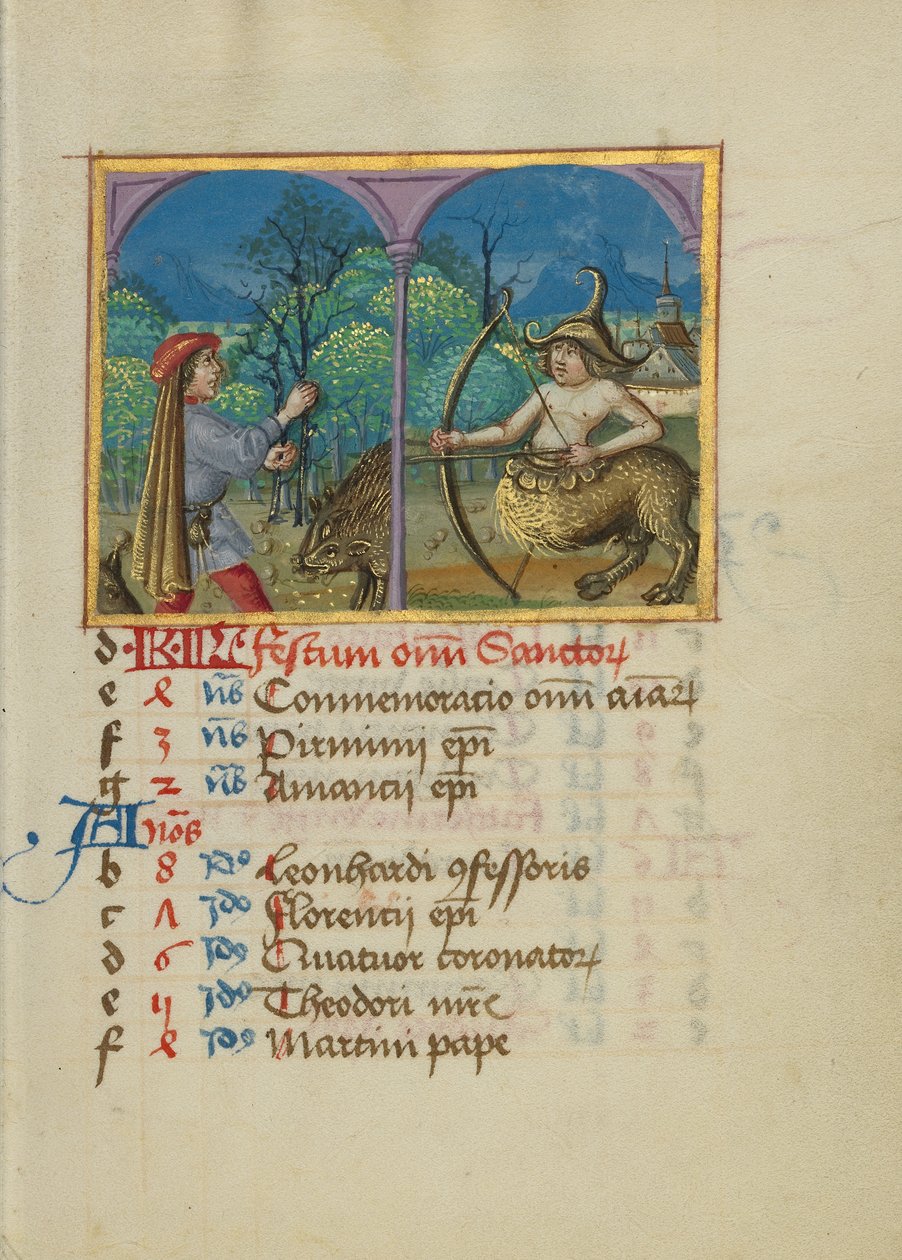 d KL festum om̄ Sanctoꝝ
e 4 nō Commemoracio om̄ aīaꝝ
f 3 nō Pirminij ep̄i
g 2 nō Amancij ep̄i
A nōs
b 8 jdꝯ Leonhardi ꝯfessoris
c Λ jdꝯ Florencij ep̄i
d 6 jdꝯ Quatuor coronatoꝝ
e 5 jdꝯ Theodori mr̄is
f 4 jdꝯ Martini pape